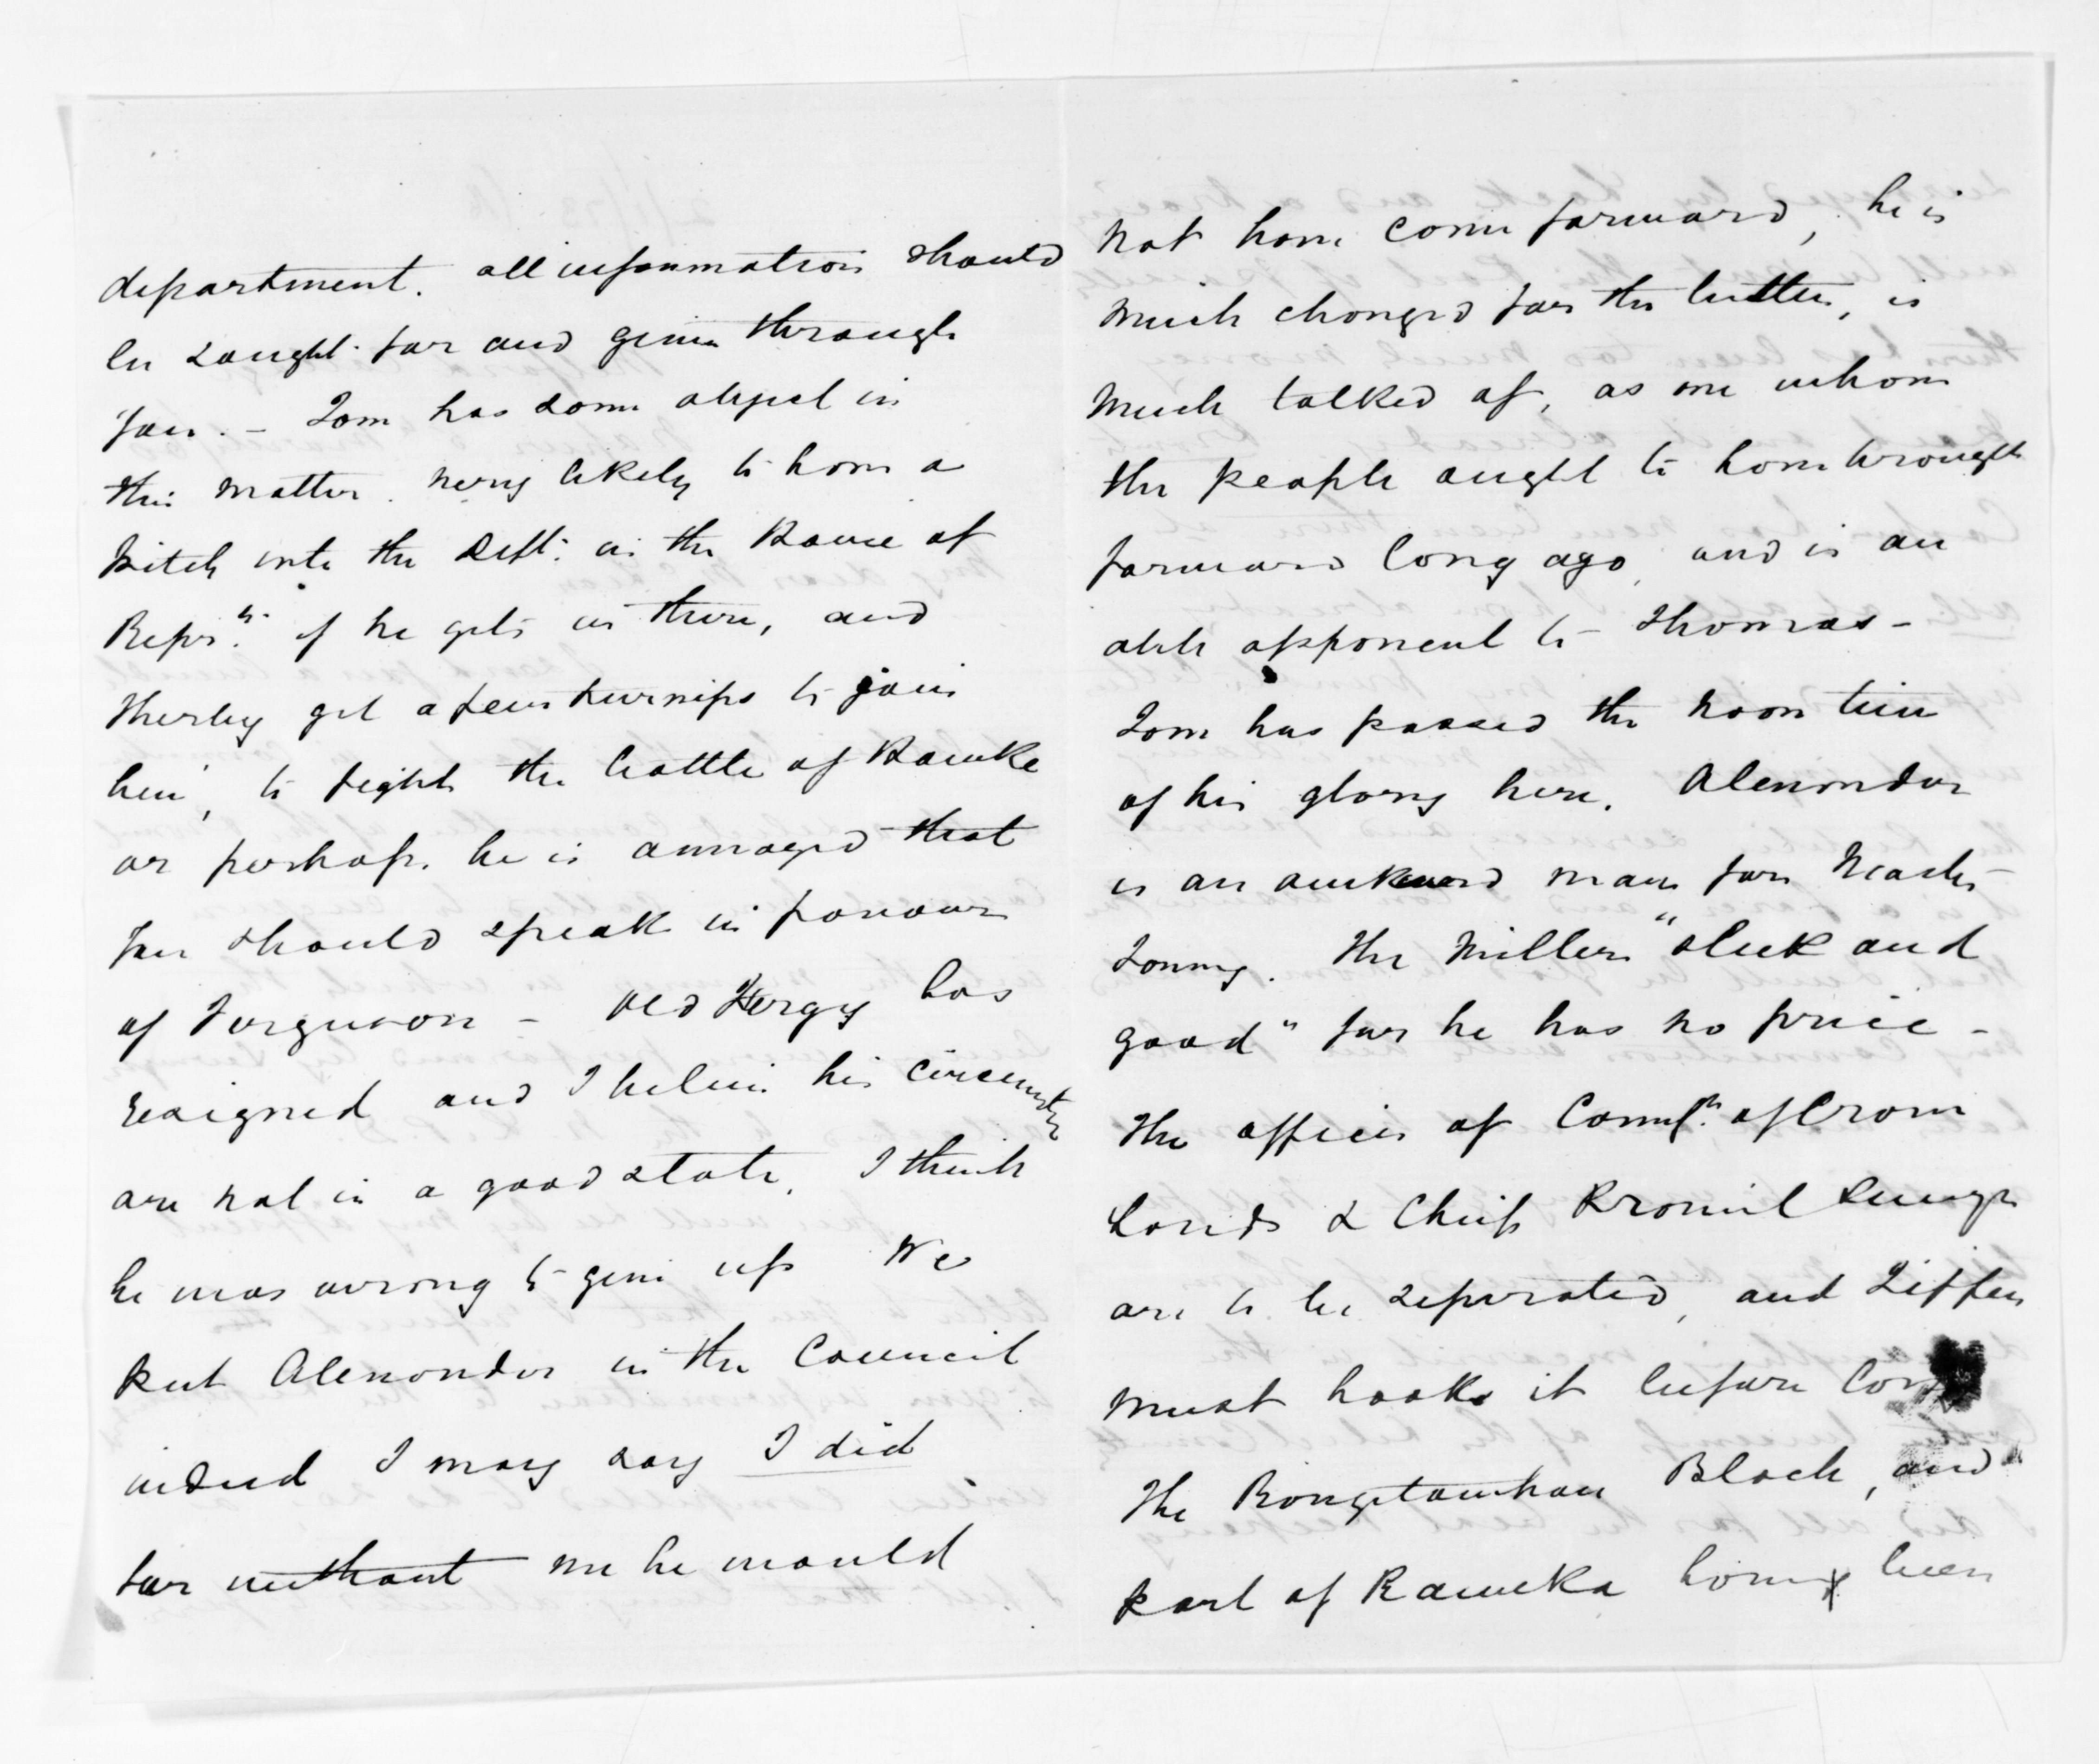 department. all information should
be sought for and given through
you. – Tom has some object in
this matter. very likely to have a
pitch into the Dept. in the House of
Reprs. if he gets in there, and
thereby get a few turnips to join
him, to fight the battle of
or perhaps he is annoyed that
you should speak in favour
of Ferguson – Old Fergy has
resigned and I believe his circumstes
are not in a good state, I think
he was wrong to give up We
put Alexander in the Council
indeed I may say I did
for without me he would
not have come forward, he is
much changed for the better, is
much talked of, as one whom
the people ought to have brought
forward long ago, and is an
able opponent to Thomas –
Tom has passed the noon time
of his glory here. Alexander
is an awkward man for Master
Tommy. The Miller "sleek and
good" for he has no price –
The offices of Commr. of Crown
Lands & Chief Provinl Survyr
are to be separated, and
must hook it before
The Block, and
part of having been